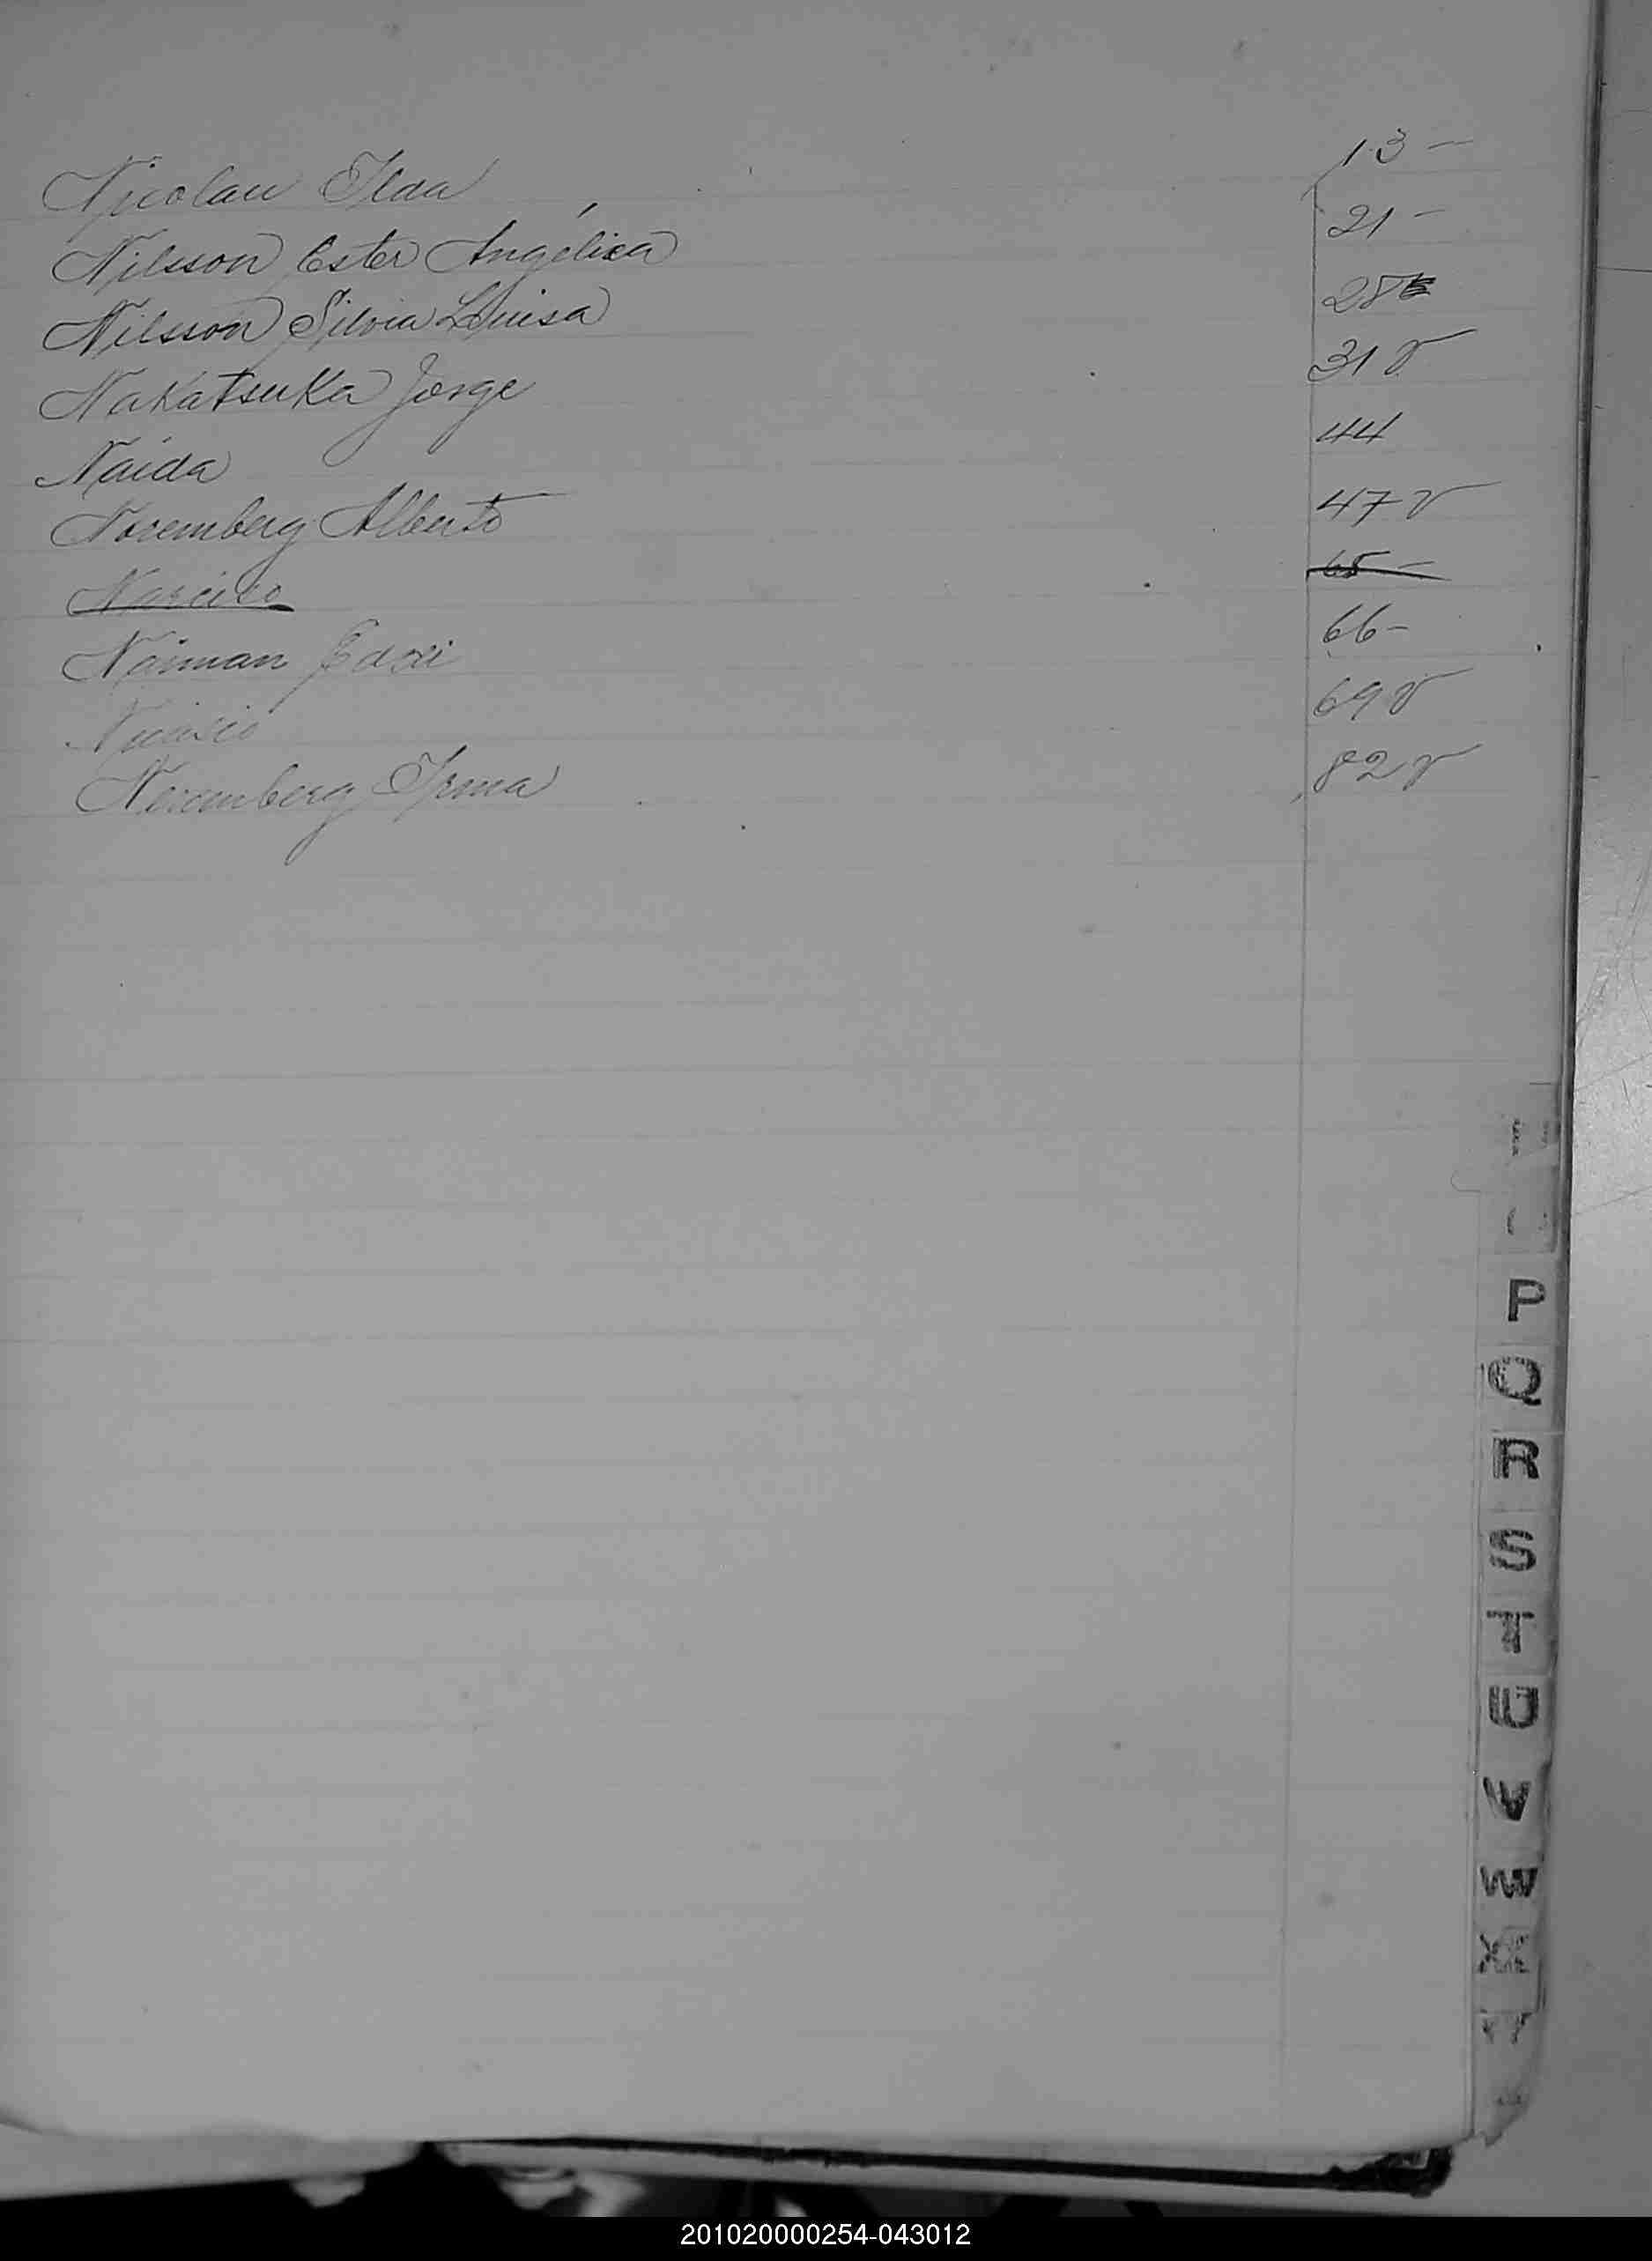 Nicolau Ilda 13 -
Nilsson Ester Angélica 21 -
Nilsson Silvia Luisa 28
Nakatsuka Jorge 31 v
Naida 44
Noremberg Alberto 47 v
Narciso 65 -
Naiman 66 -
69 v
Noremberg Irma 82 v
P
Q
R
S
T
U
V
W
X
Y
201020000254-043012